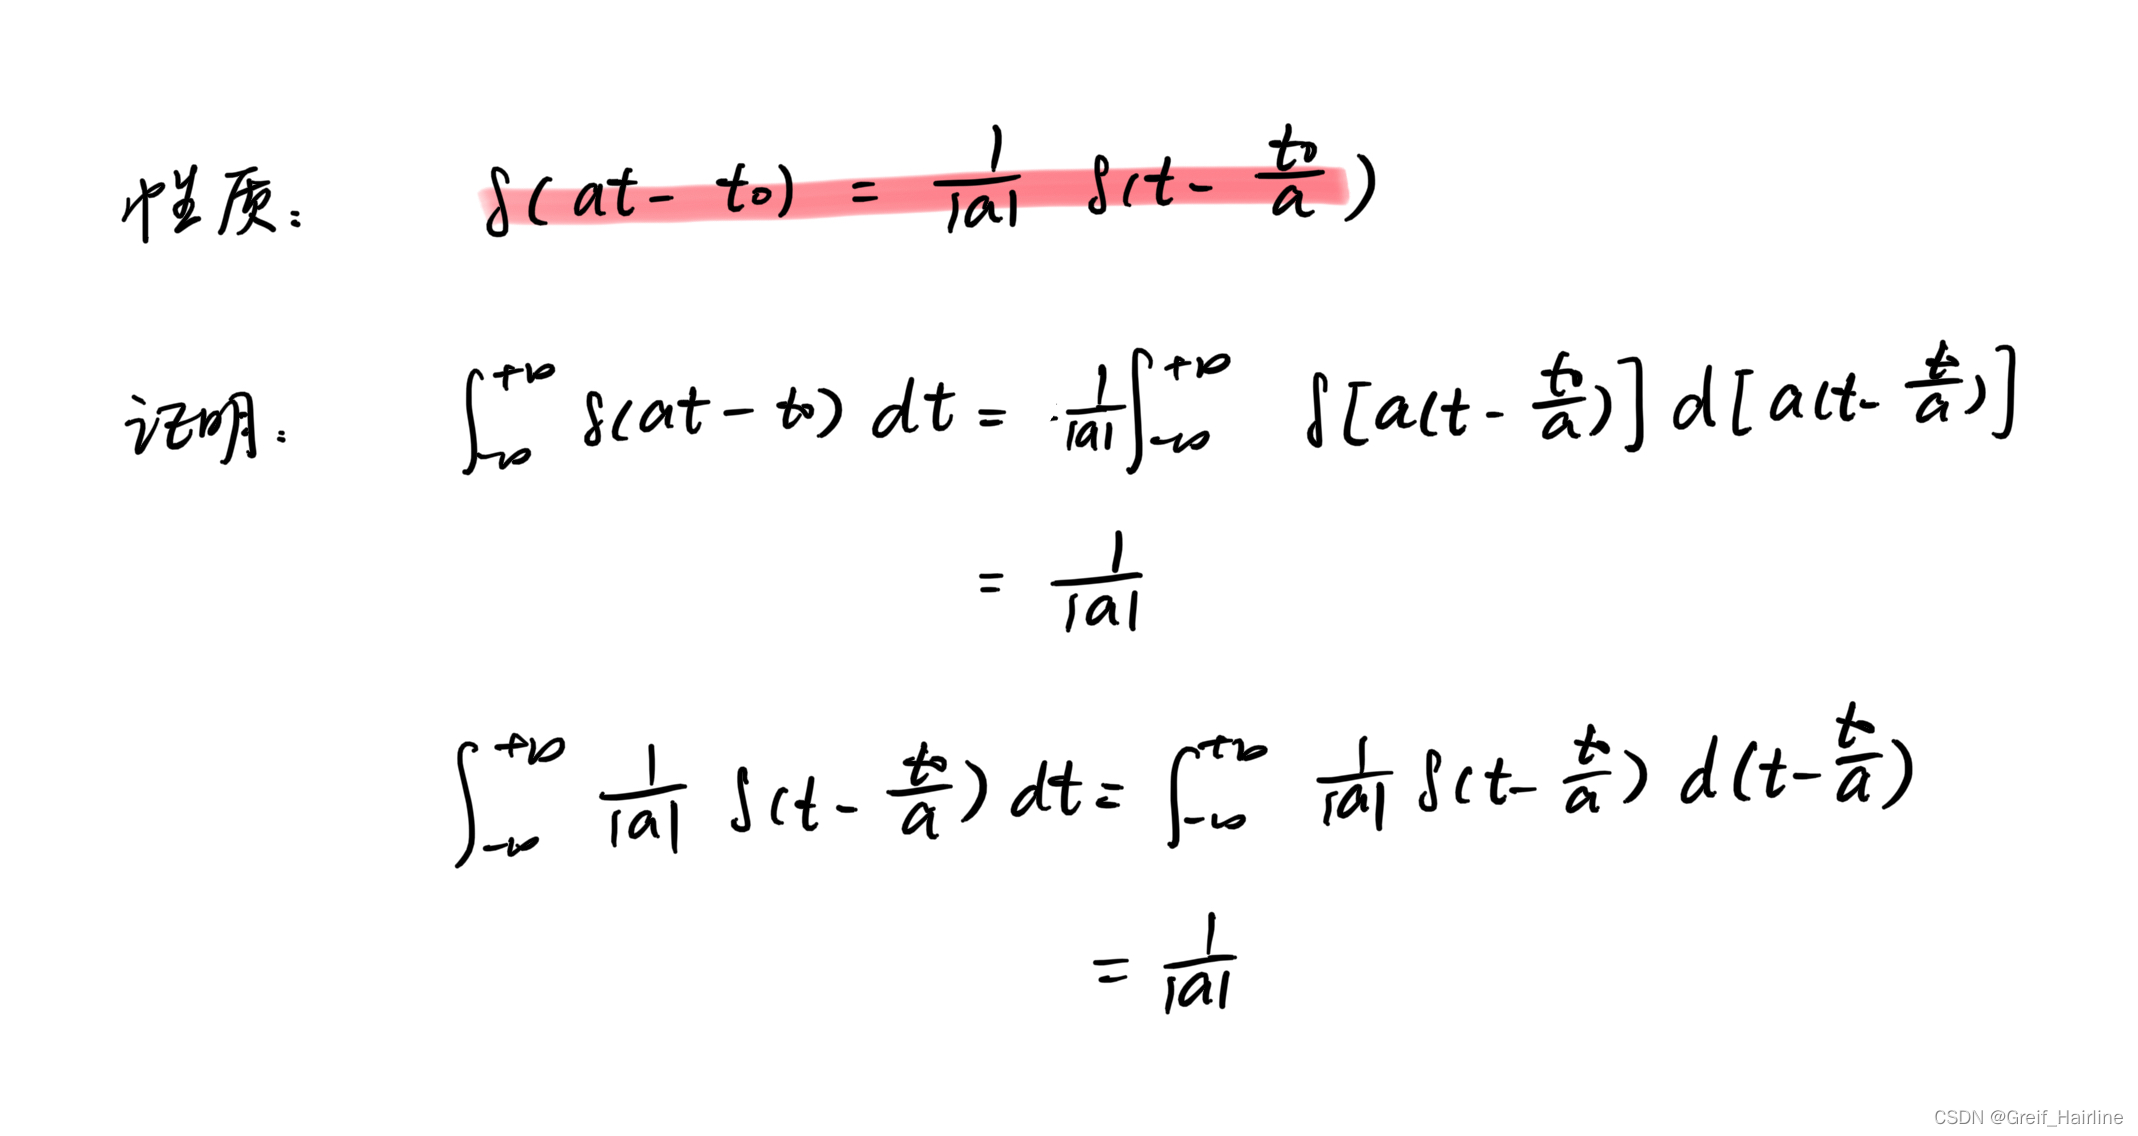 性质： δ(at - t₀) = 1/|a| δ(t - t₀/a)
证明： ∫_{-∞}^{+∞} δ(at - t₀) dt = 1/|a| ∫_{-∞}^{+∞} δ[a(t - t₀/a)] d[a(t - t₀/a)]
= 1/|a|
∫_{-∞}^{+∞} 1/|a| δ(t - t₀/a) dt = ∫_{-∞}^{+∞} 1/|a| δ(t - t₀/a) d(t - t₀/a)
= 1/|a|
CSDN @Greif_Hairline